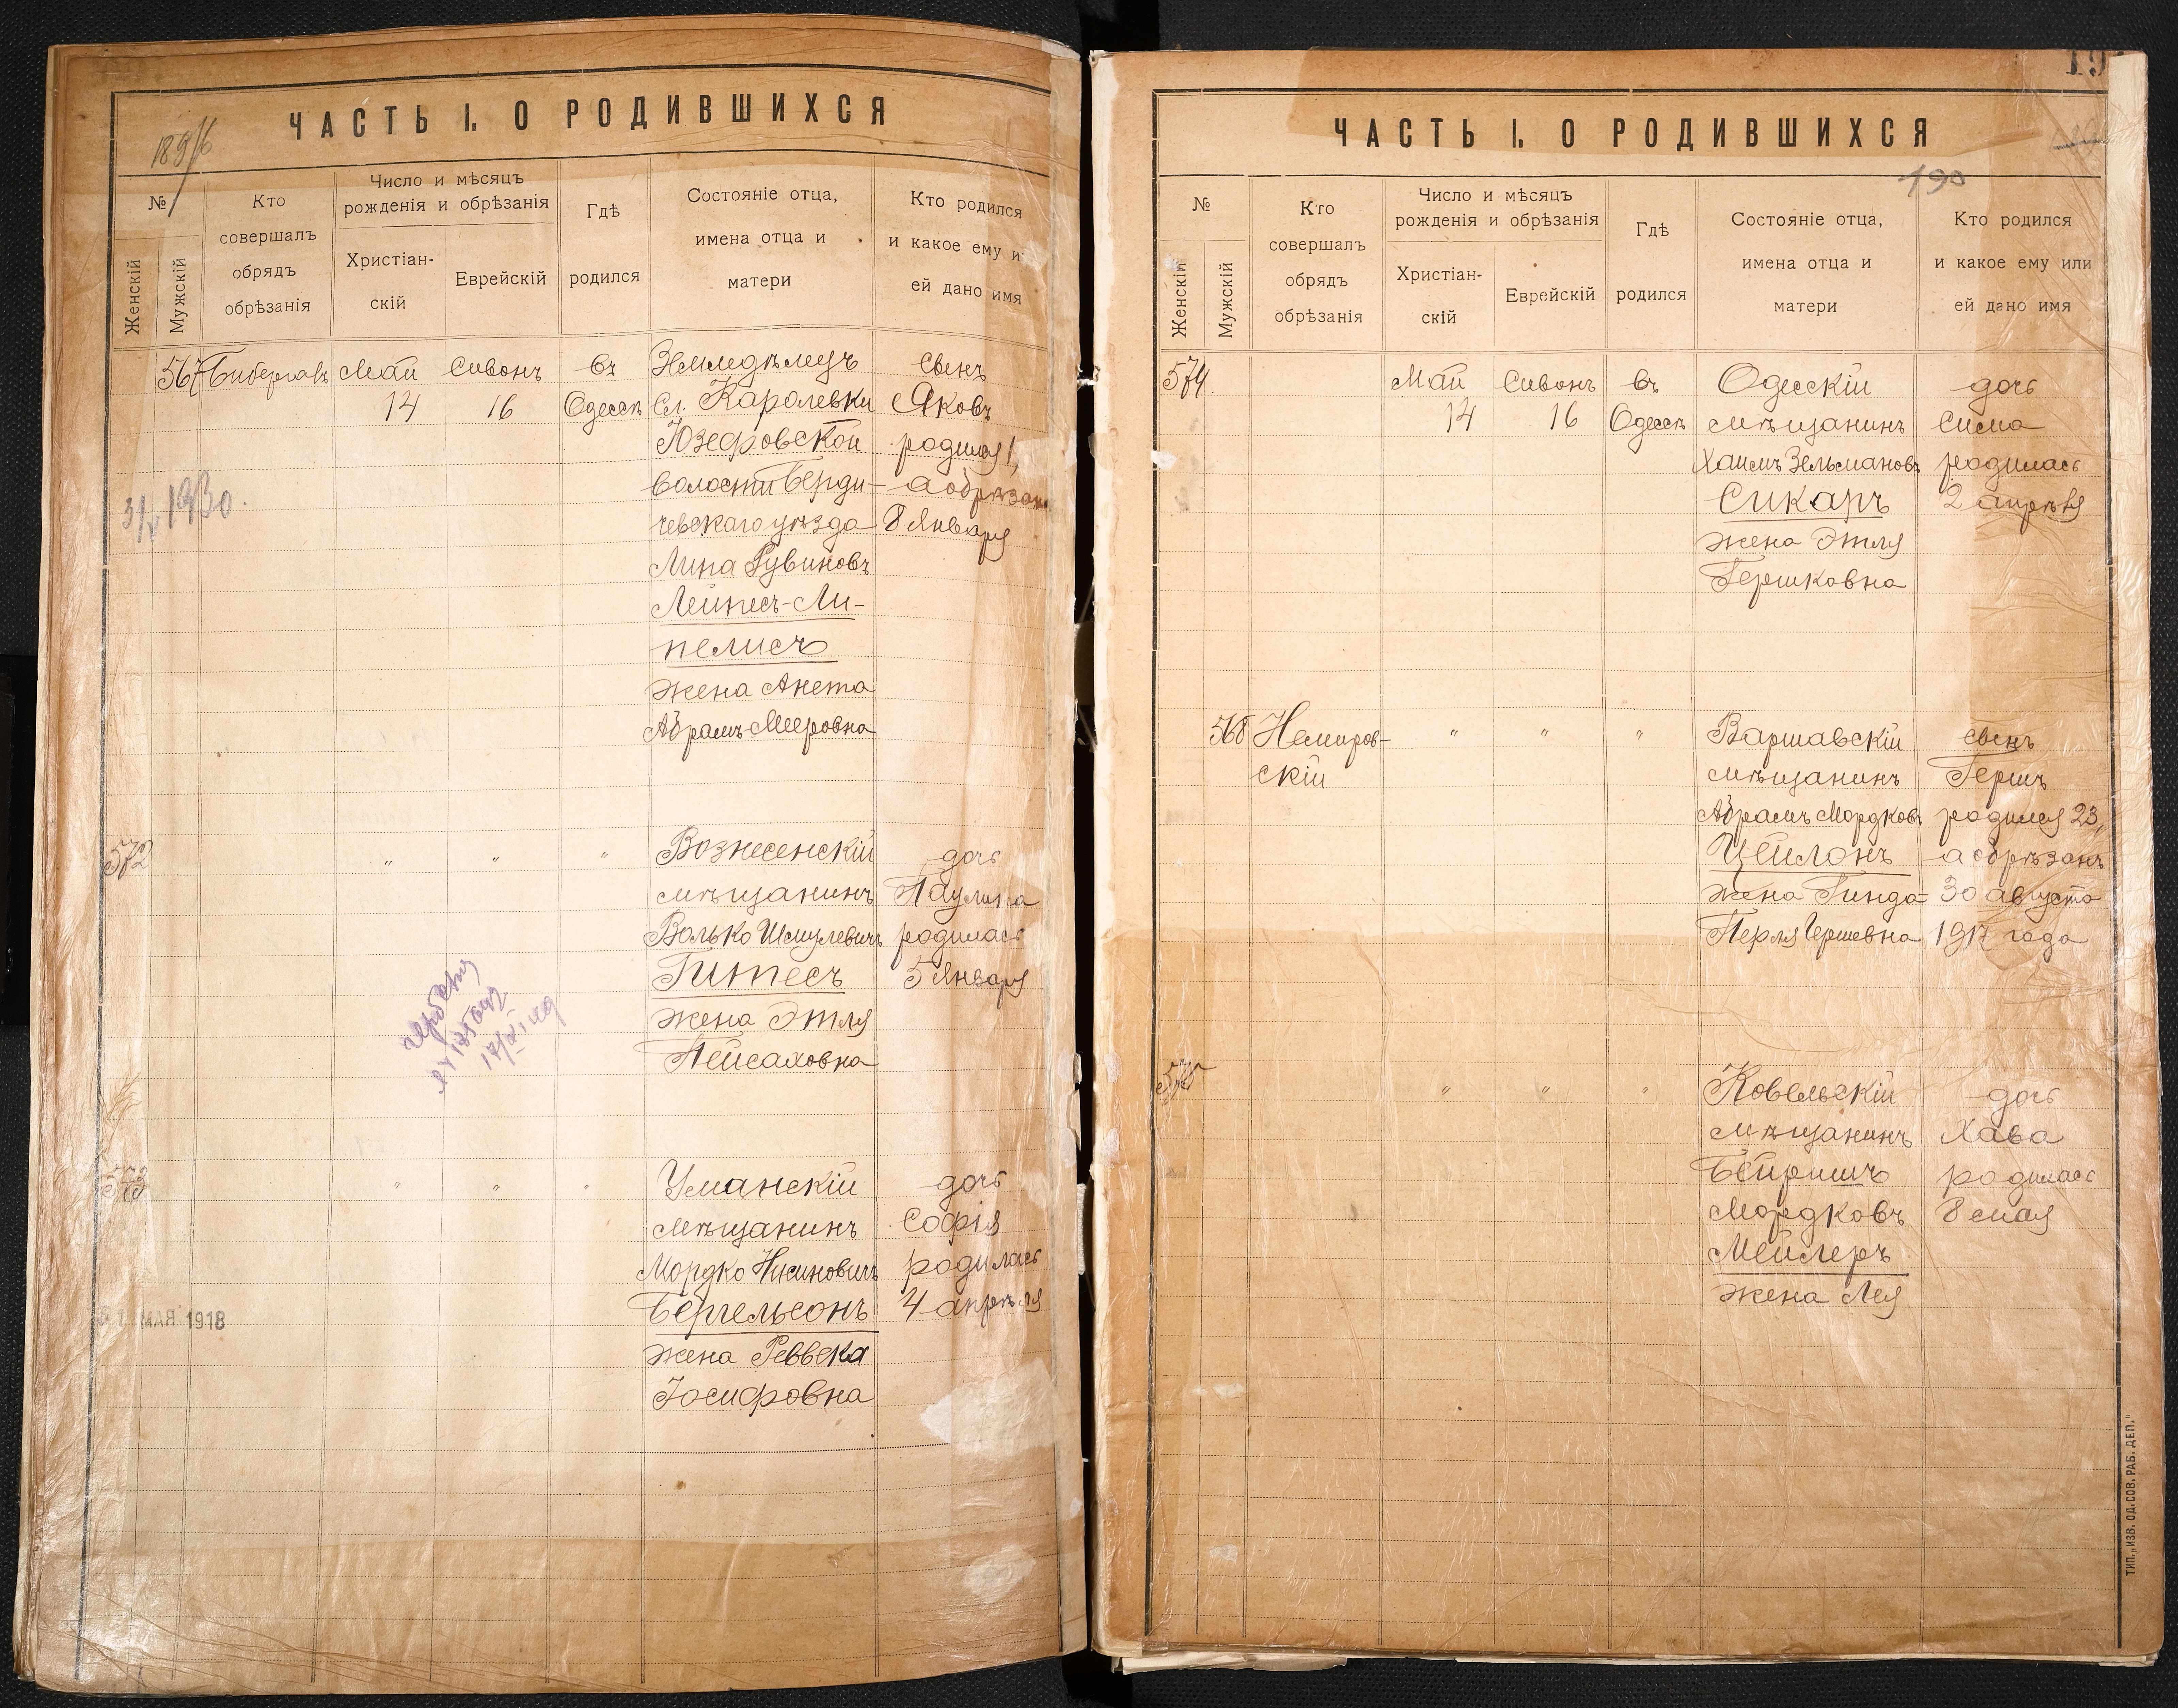 ЧАСТЬ I. О РОДИВШИХСЯ
№
Женскій
Мужскій
Кто
совершалъ
обрядъ
обрѣзанія
Число и мѣсяцъ
рожденія и обрѣзанія
Христіан-
скій
Еврейскій
Гдѣ
родился
Состояніе отца,
имена отца и
матери
Кто родился
и какое ему и
ей дано имя
567
Май
14
Сивонъ
16
въ
Одессѣ
Земледѣлецъ
Сл. Каролевки
Юзефовской
волости Берди-
чевскаго уѣзда
Липа Рувиновъ
Лейпесъ-Ли-
пелисъ
жена Анета
Абрамъ-Мееровна
сынъ
Яковъ
родился 1,
а обрѣзанъ
8 Января
1930.
572
" " "
Вознесенскій
мѣщанинъ
Волько Шмулевичъ
Гитесъ
жена Этля
Пейсаховна
дочь
Паулина
родилась
5 Января
573
" " "
Уманскій
мѣщанинъ
Мордко Нисиновичъ
Бергельсонъ
жена Реввека
Іосифовна
дочь
Софія
родилась
4 апрѣля
МАЯ 1918
ЧАСТЬ I. О РОДИВШИХСЯ
190
№
Женскій
Мужскій
Кто
совершалъ
обрядъ
обрѣзанія
Число и мѣсяцъ
рожденія и обрѣзанія
Христіан-
скій
Еврейскій
Гдѣ
родился
Состояніе отца,
имена отца и
матери
Кто родился
и какое ему или
ей дано имя
574
Май
14
Сивонъ
16
въ
Одессѣ
Одесскій
мѣщанинъ
Хаимъ Зельмановъ
Сикаръ
жена Этля
Гершковна
дочь
Сима
родилась
2 апрѣля
568
Немиров-
скій
" " "
Варшавскій
мѣщанинъ
Абрамъ Мордковъ
Цейлонъ
жена Гинда-
Перля Гершевна
сынъ
Гершъ
родился 23,
а обрѣзанъ
30 августа
1917 года
575
" " "
Ковельскій
мѣщанинъ
Бейришъ
Мордковъ
Мейлеръ
жена Лея
дочь
Хава
родилась
8 мая
ТИП. „ИЗВ. ОД. СОВ. РАБ. ДЕП."